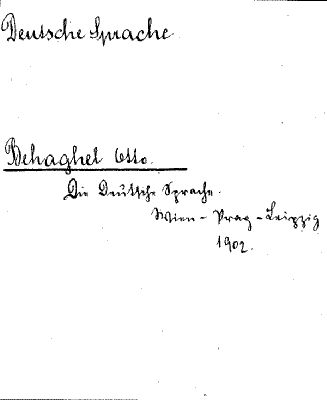 Deutsche Sprache
Behaghel Otto.
Die Deutsche Sprache.
Wien - Prag - Leipzig
1902.